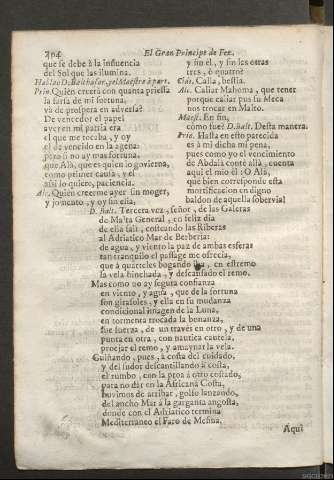 204
El Gran Principe de Fez.
que se debe à la influencia
del Sol que las ilumina.
Hablan D. Balthasar, y el Maestro à parte.
Prin. Quien creerà con quanta priessa
la farsa de mi fortuna,
và de prospera en adversa?
De vencedor el papel
ayer en mi patria era
el que me tocaba, y oy
el de vencido en la agena:
pero si no ay mas fortuna,
que Alà, que es quien lo govierna,
como primer causa, y èl
assi lo quiere, paciencia.
Alc. Quien creerme ayer sin moger,
y jomento, y oy sin ella,
y sin èl, y sin les otras
tres, ò quatro?
Cid. Calla, bestia.
Alc. Callar Mahoma, que tener
porque callar pus su Meca
nos trocar en Malto.
Maest. En fin,
còmo fue? D. Balt. Desta manera.
Prin. Hasta en esto parecida
es à mi dicha mi pena,
pues como yo el vencimiento
de Abdalà contè allà, cuenta
aqui el mio èl: O Alà,
que bien corresponde esta
mortificacion en digno
baldon de aquella sobervia!
D. Balt. Tercera vez, señor, de las Galeras
de Malta General, en feliz dia
de ella salì, costeando las Riberas
al Adriatico Mar de Berberia:
de agua, y viento la paz de ambas esferas
tan tranquilo el passage me ofrecia,
que à quarteles bogando iba, en estremo
la vela hinchada, y descansado el remo.
Mas como no ay segura confianza
en viento, y agua, que de la fortuna
son girasoles, y ella en su mudanza
condicional imagen de la Luna,
en tormenta trocada la bonanza,
fue fuerza, de un travès en otro, y de una
punta en otra, con nautica cautela,
proejar el remo, y amaynar la vela.
Guiñando, pues, à costa del cuidado,
y del sudor descantillando à costa,
el rumbo, con la proa à otro costado,
para no dàr en la Africana Costa,
huvimos de arribar, golfo lanzando,
del ancho Mar à la garganta angosta,
donde con el Adriatico termina
Mediterraneo el Faro de Mesina.
Aqui